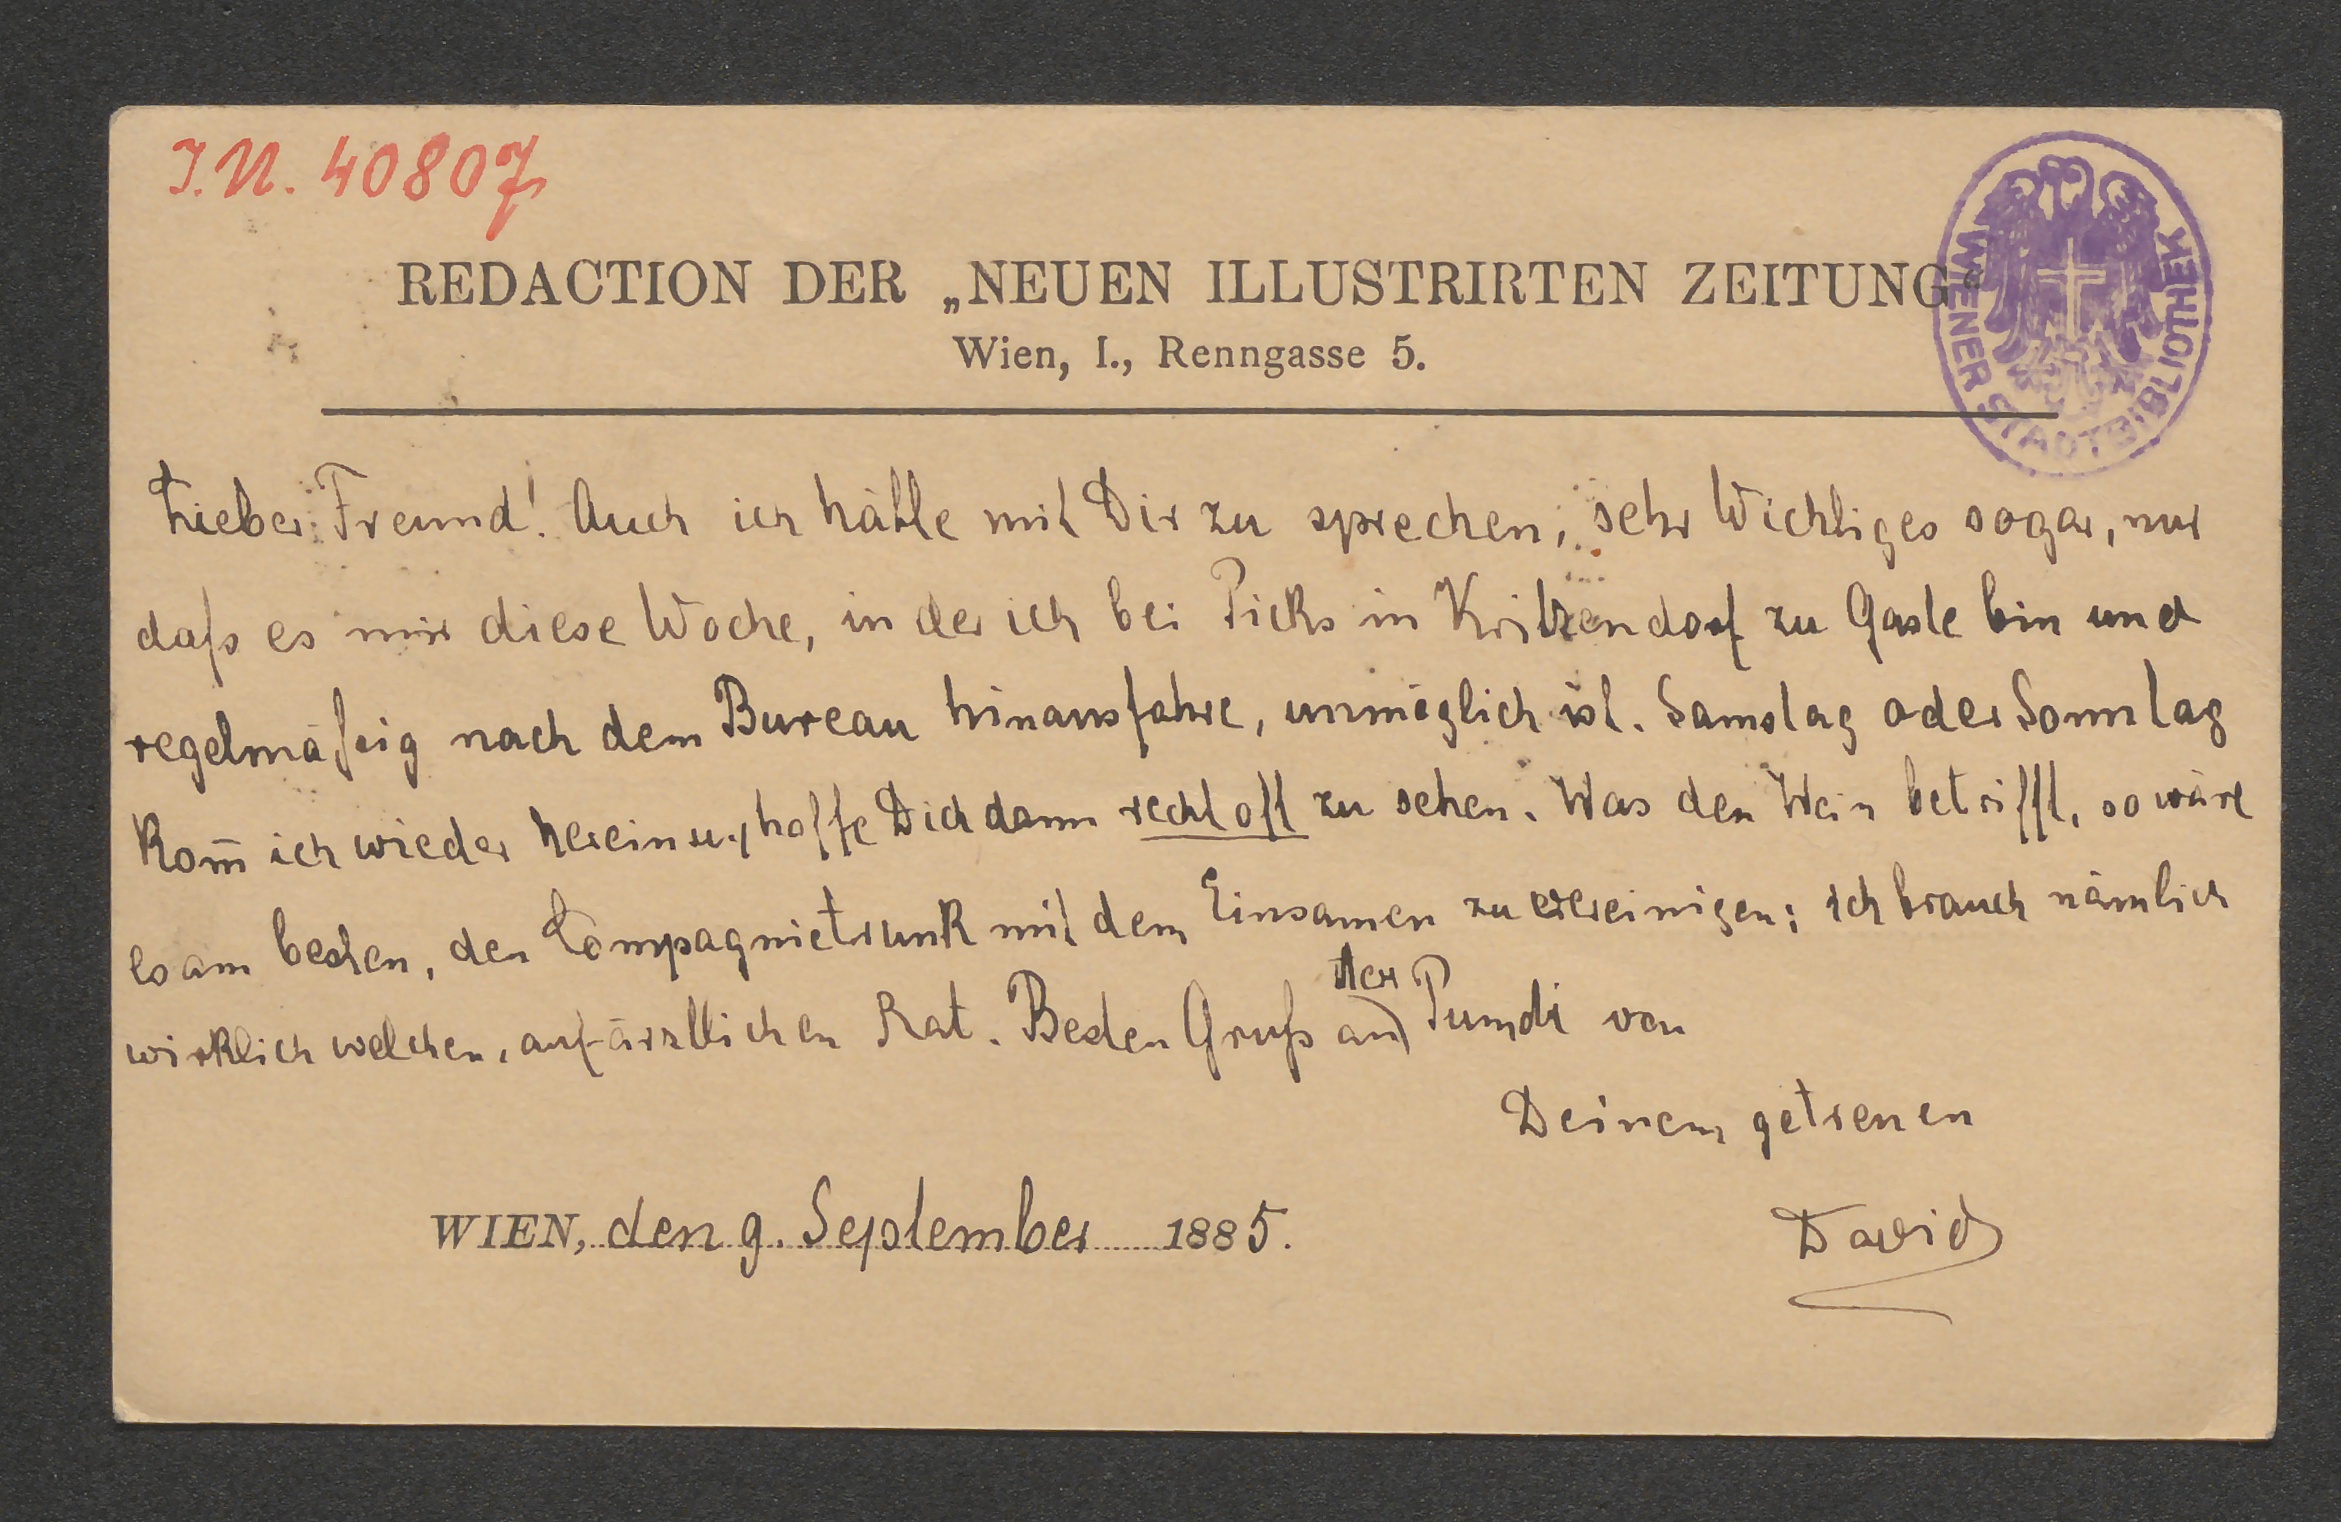 J.N. 40807
REDACTION DER „NEUEN ILLUSTRIRTEN ZEITUNG“
Wien, I., Renngasse 5.
WIENER STADTBIBLIOTHEK
Lieber Freund! Auch ich hätte mit Dir zu sprechen, sehr Wichtiges sogar, nur
daß es mir diese Woche, in der ich bei Picks in Kritzendorf zu Gaste bin und
regelmäßig nach dem Bureau hinausfahre, unmöglich ist. Samstag oder Sonntag
kom̅ ich wieder herein u. hoffe Dich dann recht oft zu sehen. Was den Wein betrifft, so wäre
es am besten, den Compagnietrunk mit dem Einsamen zu vereinigen; ich brauch nämlich
wirklich welchen, auf ärztlichen Rat. Besten Gruß an den Pumdi von
Deinem getreuen
David
WIEN, den 9. September 1885.